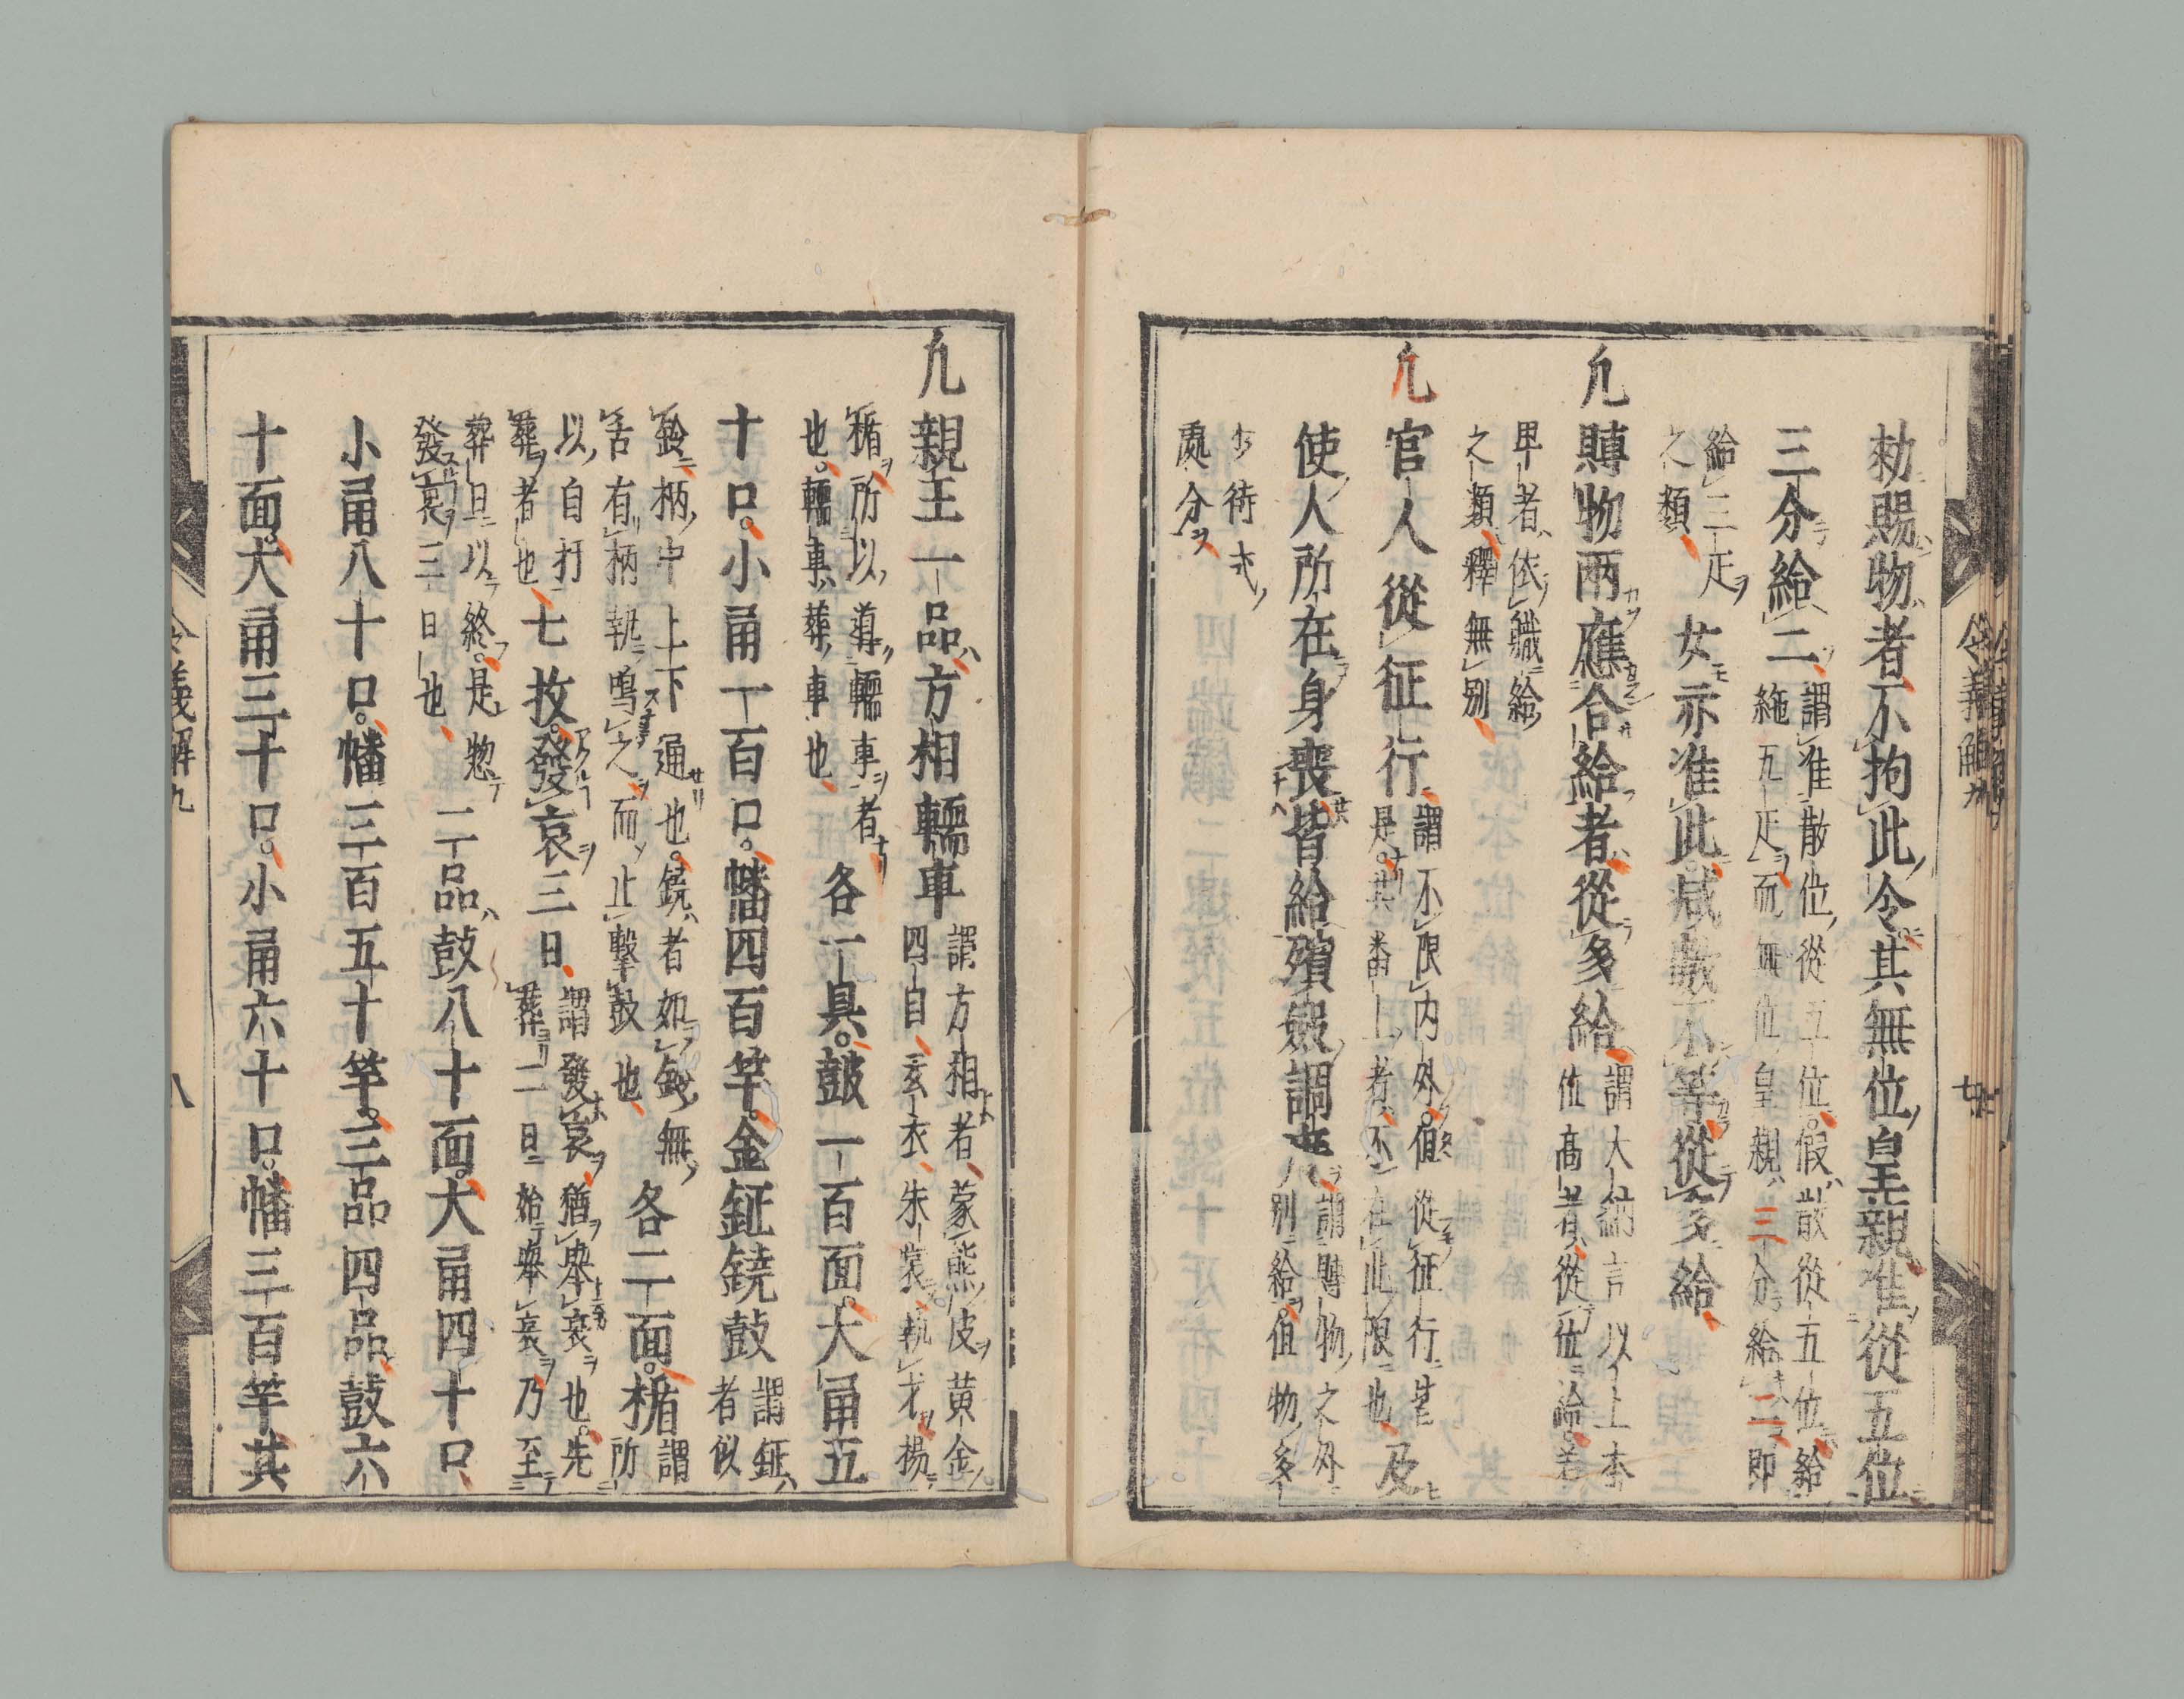 令義解九
勅賜物者不拘此令其無位皇親准從五位
三分給二
謂准散位從五位假散從五位給
絁五疋而無位皇親三分給二即
給三疋
之類
女亦准此咸數不等從多給
凢賻物兩應合給者從多給
謂大納言以上本
位高者從位給若
卑者依職給
之類釋無別
凢官人從征行
謂不限内外但從征行皆
是其番上者不在此限也
及
使人所在身喪皆給殯斂調度
謂賻物之外
別給但物多
少待式
處分
凢親王一品方相轜車
謂方相者蒙熊皮黄金
四目玄衣朱裳執才揚
楯所以導轜車者
也轜車葬車也
各一具皷一百面大甬五
十口小甬一百口幡四百竿金鉦鐃鼓
謂鉦
者似
鈴柄中上下通也鐃者如鈴無
舌有柄執鳴之而止擊鼓也
各二面楯
謂
所
以自扞
葬者也
七枚發哀三日
謂發哀猶舉哀也先
葬二日始舉哀乃至
葬日以終是惣
發哀三日也
二品鼓八十面大甬四十口
小甬八十口幡三百五十竿三品四品鼓六
十面大甬三十口小甬六十口幡三百竿其
令義解九
八